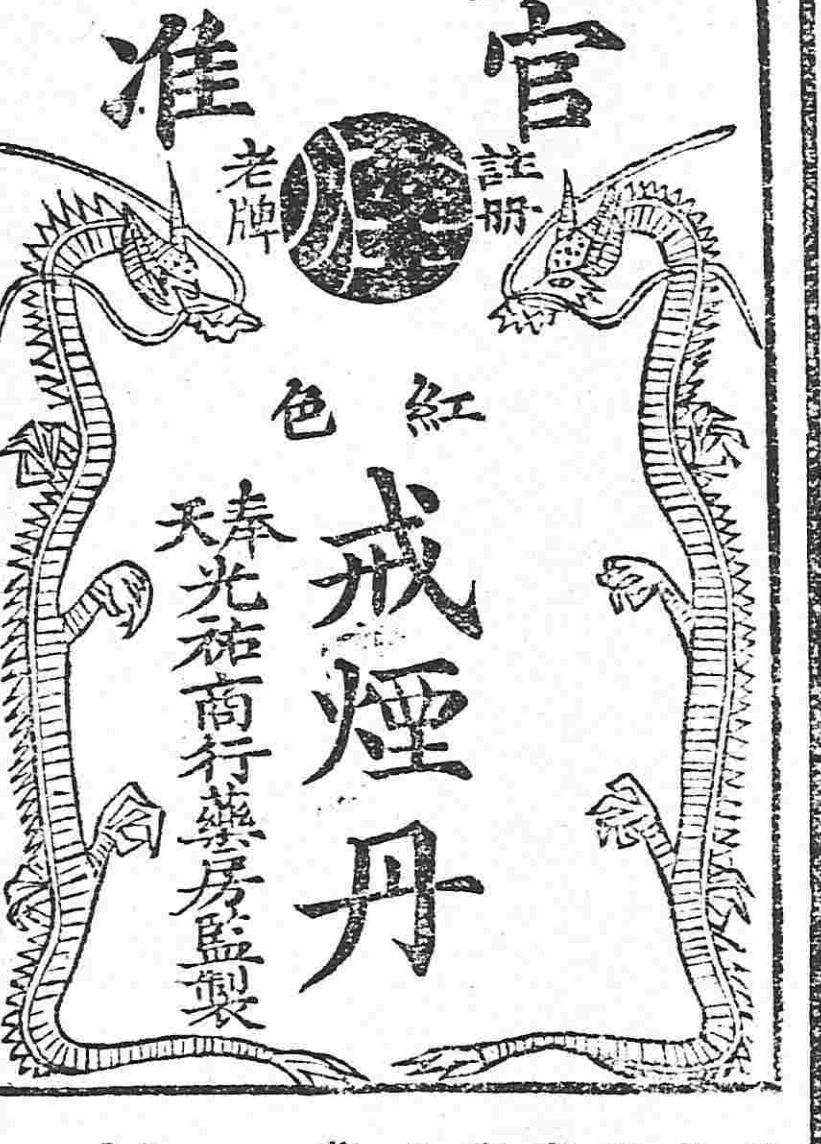 官准
註册
老牌
紅色
戒煙丹
奉天
光祐商行藥房監製